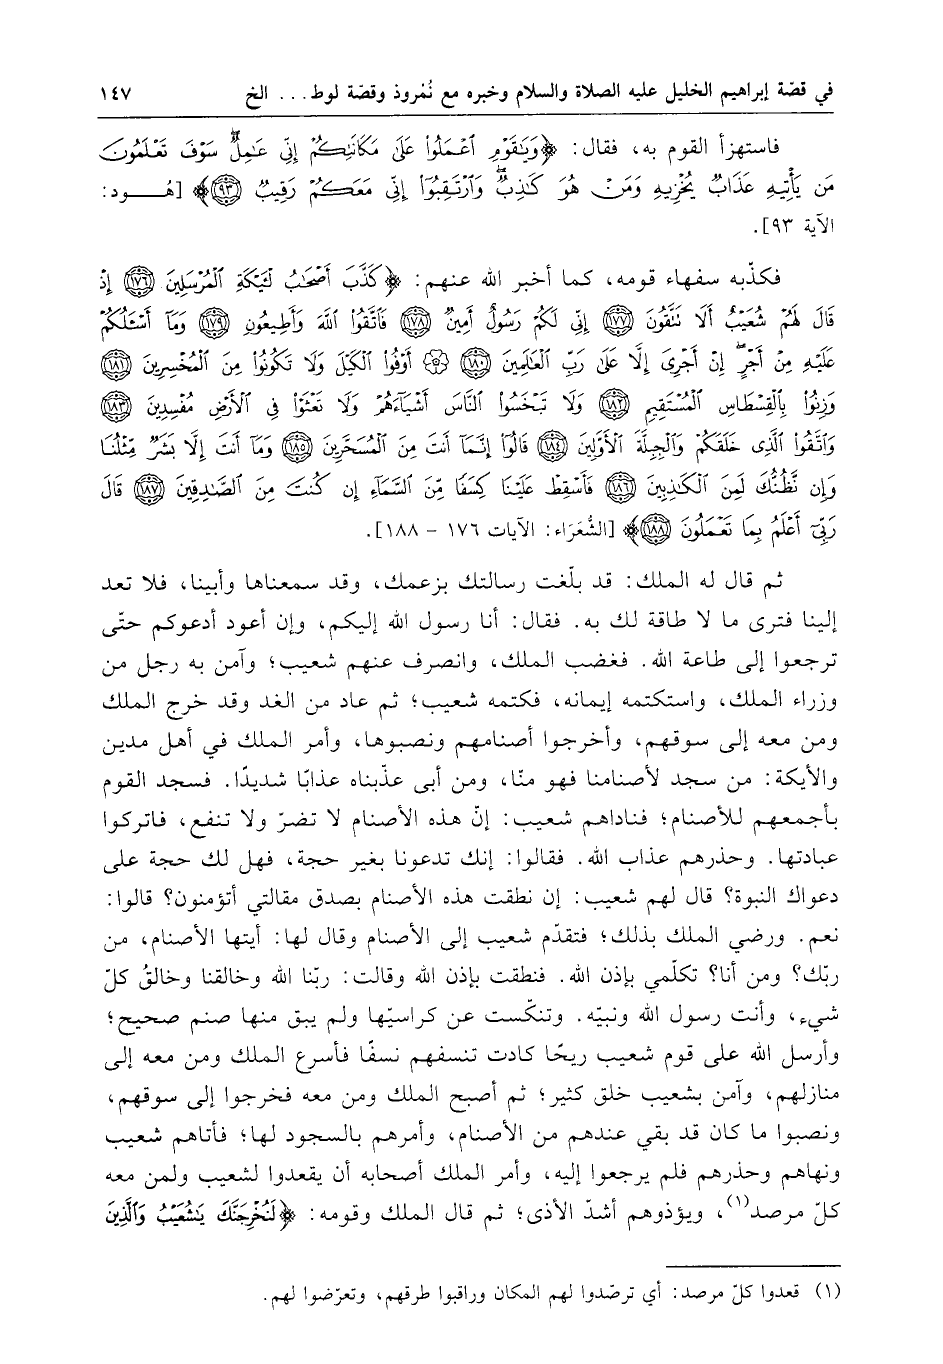 في قصّة إبراهيم الخليل عليه الصلاة والسلام وخبره مع نُمْروذ وقصّة لوط... الخ ١٤٧
فاستهزأ القوم به، فقال: ﴿وَيَٰقَوْمِ ٱعْمَلُوا۟ عَلَىٰ مَكَانَتِكُمْ إِنِّى عَٰمِلٌۖ سَوْفَ تَعْلَمُونَ
مَن يَأْتِيهِ عَذَابٌ يُخْزِيهِ وَمَنْ هُوَ كَٰذِبٌۖ وَٱرْتَقِبُوٓا۟ إِنِّى مَعَكُمْ رَقِيبٌ ﴿٩٣﴾﴾ [هُود:
الآية ٩٣].
فكذّبه سفهاء قومه، كما أخبر الله عنهم: ﴿كَذَّبَ أَصْحَٰبُ لْـَٔيْكَةِ ٱلْمُرْسَلِينَ ﴿١٧٦﴾ إِذْ
قَالَ لَهُمْ شُعَيْبٌ أَلَا تَتَّقُونَ ﴿١٧٧﴾ إِنِّى لَكُمْ رَسُولٌ أَمِينٌ ﴿١٧٨﴾ فَٱتَّقُوا۟ ٱللَّهَ وَأَطِيعُونِ ﴿١٧٩﴾ وَمَآ أَسْـَٔلُكُمْ
عَلَيْهِ مِنْ أَجْرٍۖ إِنْ أَجْرِىَ إِلَّا عَلَىٰ رَبِّ ٱلْعَٰلَمِينَ ﴿١٨٠﴾ ۞ أَوْفُوا۟ ٱلْكَيْلَ وَلَا تَكُونُوا۟ مِنَ ٱلْمُخْسِرِينَ ﴿١٨١﴾
وَزِنُوا۟ بِٱلْقِسْطَاسِ ٱلْمُسْتَقِيمِ ﴿١٨٢﴾ وَلَا تَبْخَسُوا۟ ٱلنَّاسَ أَشْيَآءَهُمْ وَلَا تَعْثَوْا۟ فِى ٱلْأَرْضِ مُفْسِدِينَ ﴿١٨٣﴾
وَٱتَّقُوا۟ ٱلَّذِى خَلَقَكُمْ وَٱلْجِبِلَّةَ ٱلْأَوَّلِينَ ﴿١٨٤﴾ قَالُوٓا۟ إِنَّمَآ أَنتَ مِنَ ٱلْمُسَحَّرِينَ ﴿١٨٥﴾ وَمَآ أَنتَ إِلَّا بَشَرٌ مِّثْلُنَا
وَإِن نَّظُنُّكَ لَمِنَ ٱلْكَٰذِبِينَ ﴿١٨٦﴾ فَأَسْقِطْ عَلَيْنَا كِسَفًا مِّنَ ٱلسَّمَآءِ إِن كُنتَ مِنَ ٱلصَّٰدِقِينَ ﴿١٨٧﴾ قَالَ
رَبِّىٓ أَعْلَمُ بِمَا تَعْمَلُونَ ﴿١٨٨﴾﴾ [الشُّعَرَاء: الآيات ١٧٦ - ١٨٨].
ثم قال له الملك: قد بلّغت رسالتك بزعمك، وقد سمعناها وأبينا، فلا تعد
إلينا فترى ما لا طاقة لك به. فقال: أنا رسول الله إليكم، وإن أعود أدعوكم حتّى
ترجعوا إلى طاعة الله. فغضب الملك، وانصرف عنهم شعيب؛ وآمن به رجل من
وزراء الملك، واستكتمه إيمانه، فكتمه شعيب؛ ثم عاد من الغد وقد خرج الملك
ومن معه إلى سوقهم، وأخرجوا أصنامهم ونصبوها، وأمر الملك في أهل مدين
والأيكة: من سجد لأصنامنا فهو منّا، ومن أبى عذّبناه عذابًا شديدًا. فسجد القوم
بأجمعهم للأصنام؛ فناداهم شعيب: إنّ هذه الأصنام لا تضرّ ولا تنفع، فاتركوا
عبادتها. وحذرهم عذاب الله. فقالوا: إنك تدعونا بغير حجة، فهل لك حجة على
دعواك النبوة؟ قال لهم شعيب: إن نطقت هذه الأصنام بصدق مقالتي أتؤمنون؟ قالوا:
نعم. ورضي الملك بذلك؛ فتقدّم شعيب إلى الأصنام وقال لها: أيتها الأصنام، من
ربّك؟ ومن أنا؟ تكلّمي بإذن الله. فنطقت بإذن الله وقالت: ربّنا الله وخالقنا وخالقُ كلّ
شيء، وأنت رسول الله ونبيّه. وتنكّست عن كراسيّها ولم يبق منها صنم صحيح؛
وأرسل الله على قوم شعيب ريحًا كادت تنسفهم نسفًا فأسرع الملك ومن معه إلى
منازلهم، وآمن بشعيب خلق كثير؛ ثم أصبح الملك ومن معه فخرجوا إلى سوقهم،
ونصبوا ما كان قد بقي عندهم من الأصنام، وأمرهم بالسجود لها؛ فأتاهم شعيب
ونهاهم وحذرهم فلم يرجعوا إليه، وأمر الملك أصحابه أن يقعدوا لشعيب ولمن معه
كلّ مرصد(١)، ويؤذوهم أشدّ الأذى؛ ثم قال الملك وقومه: ﴿لَنُخْرِجَنَّكَ يَٰشُعَيْبُ وَٱلَّذِينَ
(١) قعدوا كلّ مرصد: أي ترصّدوا لهم المكان وراقبوا طرقهم، وتعرّضوا لهم.